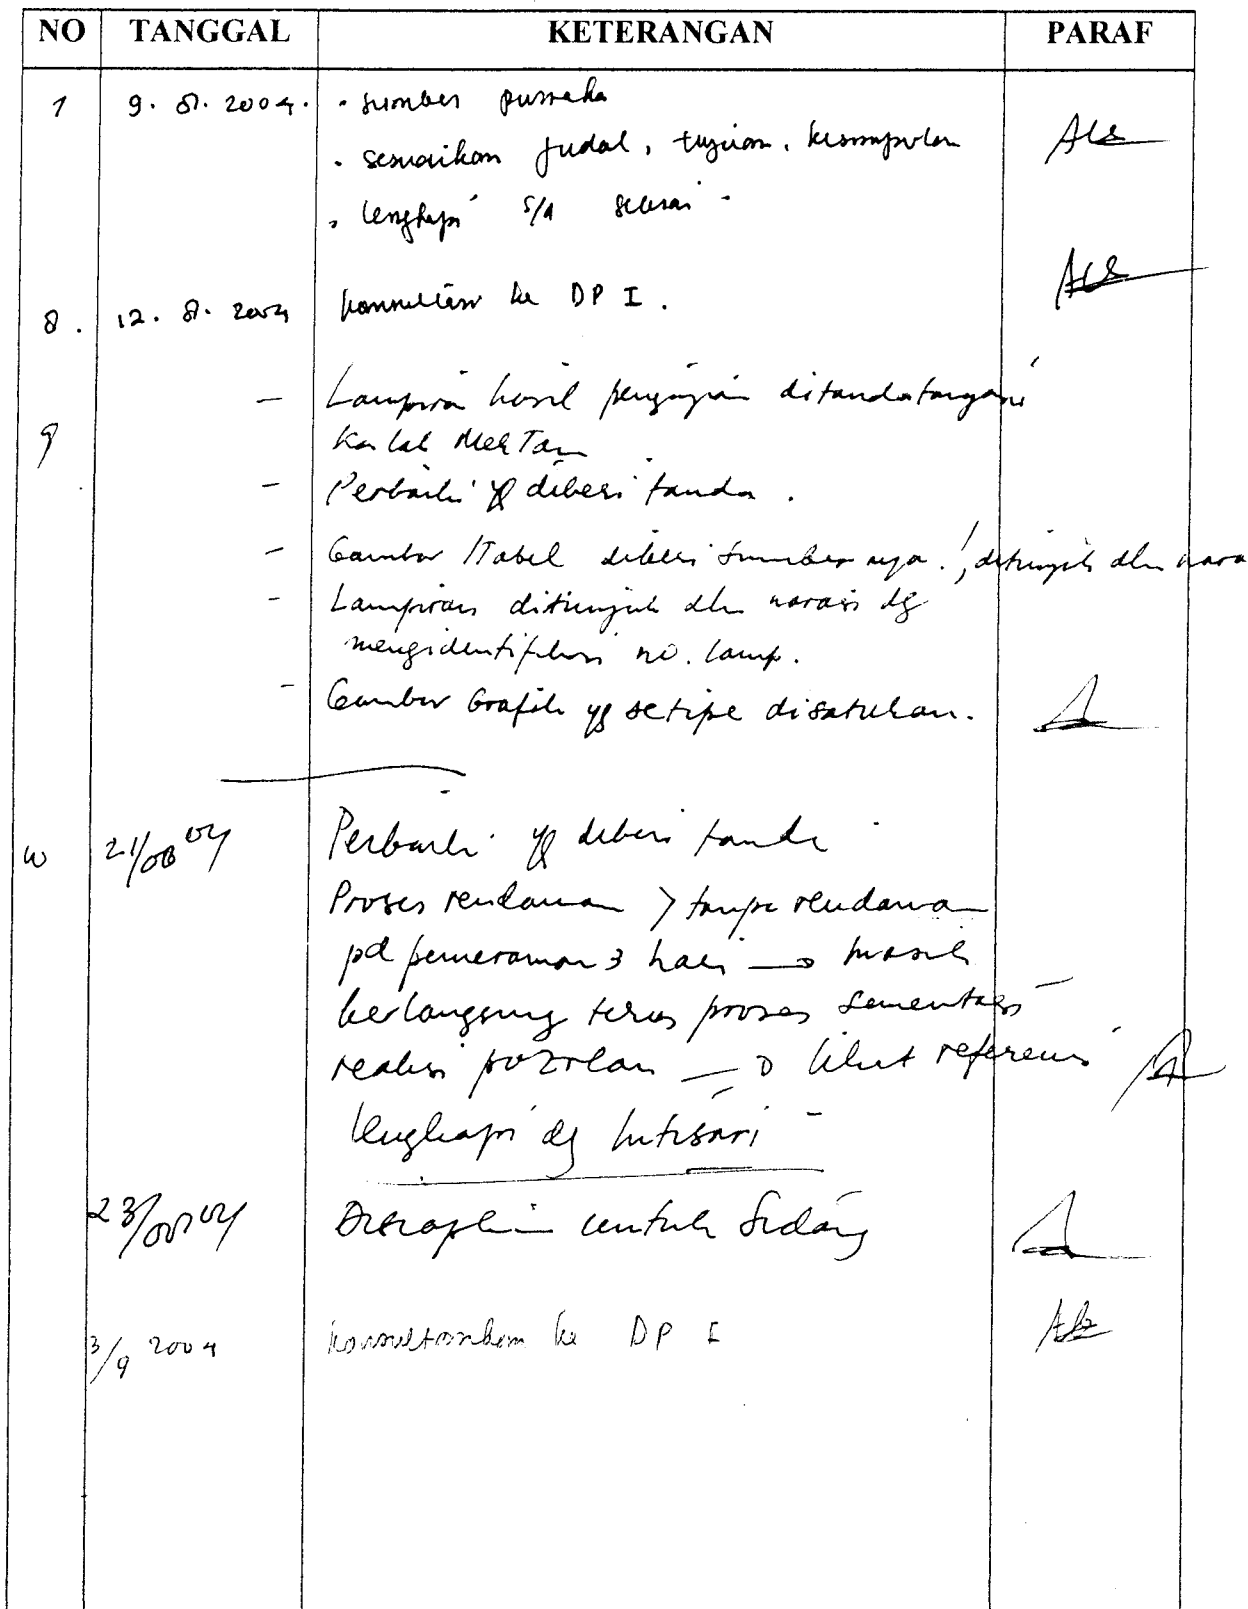 NO TANGGAL KETERANGAN PARAF
7 9. 8. 2004. • sumber pustaka
• sesuaikan judul, tujuan, kesimpulan
• lengkapi s/d selesai
8. 12. 8. 2004 konsultasi ke DP I.
- Lampiran hasil pengujian ditandatangani
9 Ka Lab MekTan
- Perbaiki yg diberi tanda.
- Gambar /Tabel diberi sumber nya.!, ditunjuk dlm nara
- Lampiran ditunjuk dlm narasi dg
mengidentifikasi no. lamp.
- Gambar Grafik yg setipe disatukan.
10 21/08 04 Perbaiki yg diberi tanda
Proses rendaman > tanpa rendaman
pd pemeraman 3 hari → masih
berlangsung terus proses sementasi
reaksi pozolan → lihat referensi
lengkapi dg Intisari
23/08 04 untuk Sidang
3/9 2004 konsultasikan ke DP I